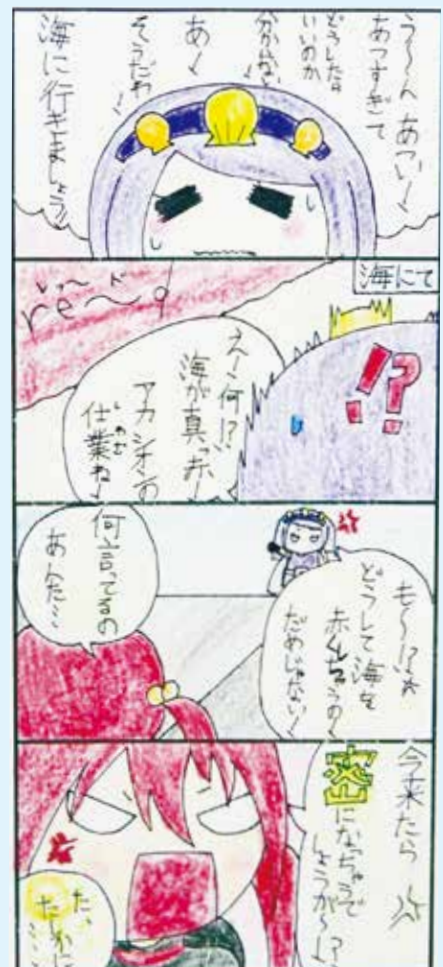 う〜ん あつい〜
あつすぎて
どうしたら
いいのか
分かんない
あ〜
そうだわ
海に行きましょう!
海にて
!?
レ〜ド
re〜d
え〜何!?
海が真っ赤〜
アカシオの
仕業ね〜
しわざ
も〜!?
どうして海を
赤くしちゃうの〜
だめじゃない〜
何言ってるの
あんた…
今来たら
密になっちゃうで
しょうが〜!?
た、
たしかに
……